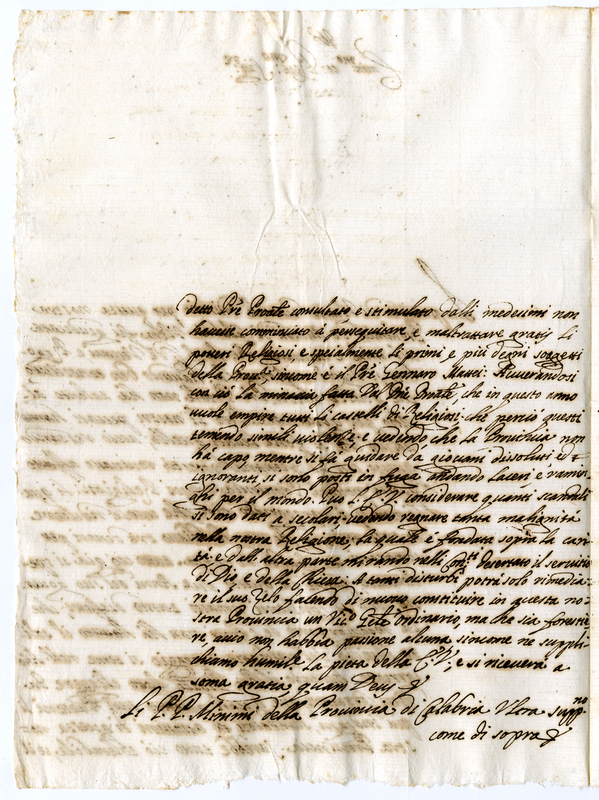 detto Pre Provle consultato e stimulato dalli medesimi non
havesse comminciato à perseguitare, e maltrattare gratis li
poveri Religiosi e specialmente li primi, e più degni soggetti
della Provª, sincome è il Pre Gennaro Mattei. Avverandosi
con ciò la minaccia fatta dal Pre Provle, che in questo anno
vuole empire tutti li castelli di Religiosi, che perciò questi
temendo simili violenze e vedendo che la Provincia non
hà capo, mentre si fà guidare da giovani dissoluti ed
ignoranti, si sono posti in fuga andando laceri e ramin-
ghi per il mondo. Può considerare quanti scandali
si sono dati a secolari vedendo regnare tanta malignità
nella nostra Religione, la quale è fondata sopra la cari-
tà e dall'altra parte mirando nelli Conti desertato il servitio
di Dio e della Chiesa. A tanti disturbi potrà solo rimedia-
re il suo zelo facendo di nuovo constituire in questa no-
stra Provincia un Vicº Gele ordinario, ma che sia forestie-
re acciò non habbia passione alcuna sincome ne suppli-
chiamo humilte la pietà della, e si riceverà a
soma gratia quam Deus
Li P.P. Minimi della Provincia di Calabria Ultra suppno
come di sopra